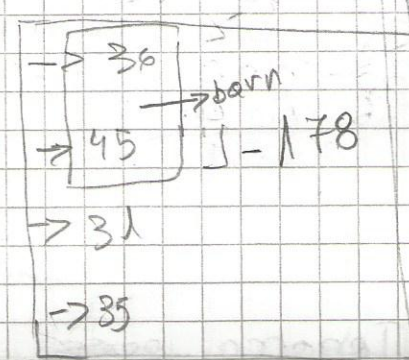 -> 36
-> barn
-> 45
J - 178
-> 31
-> 35